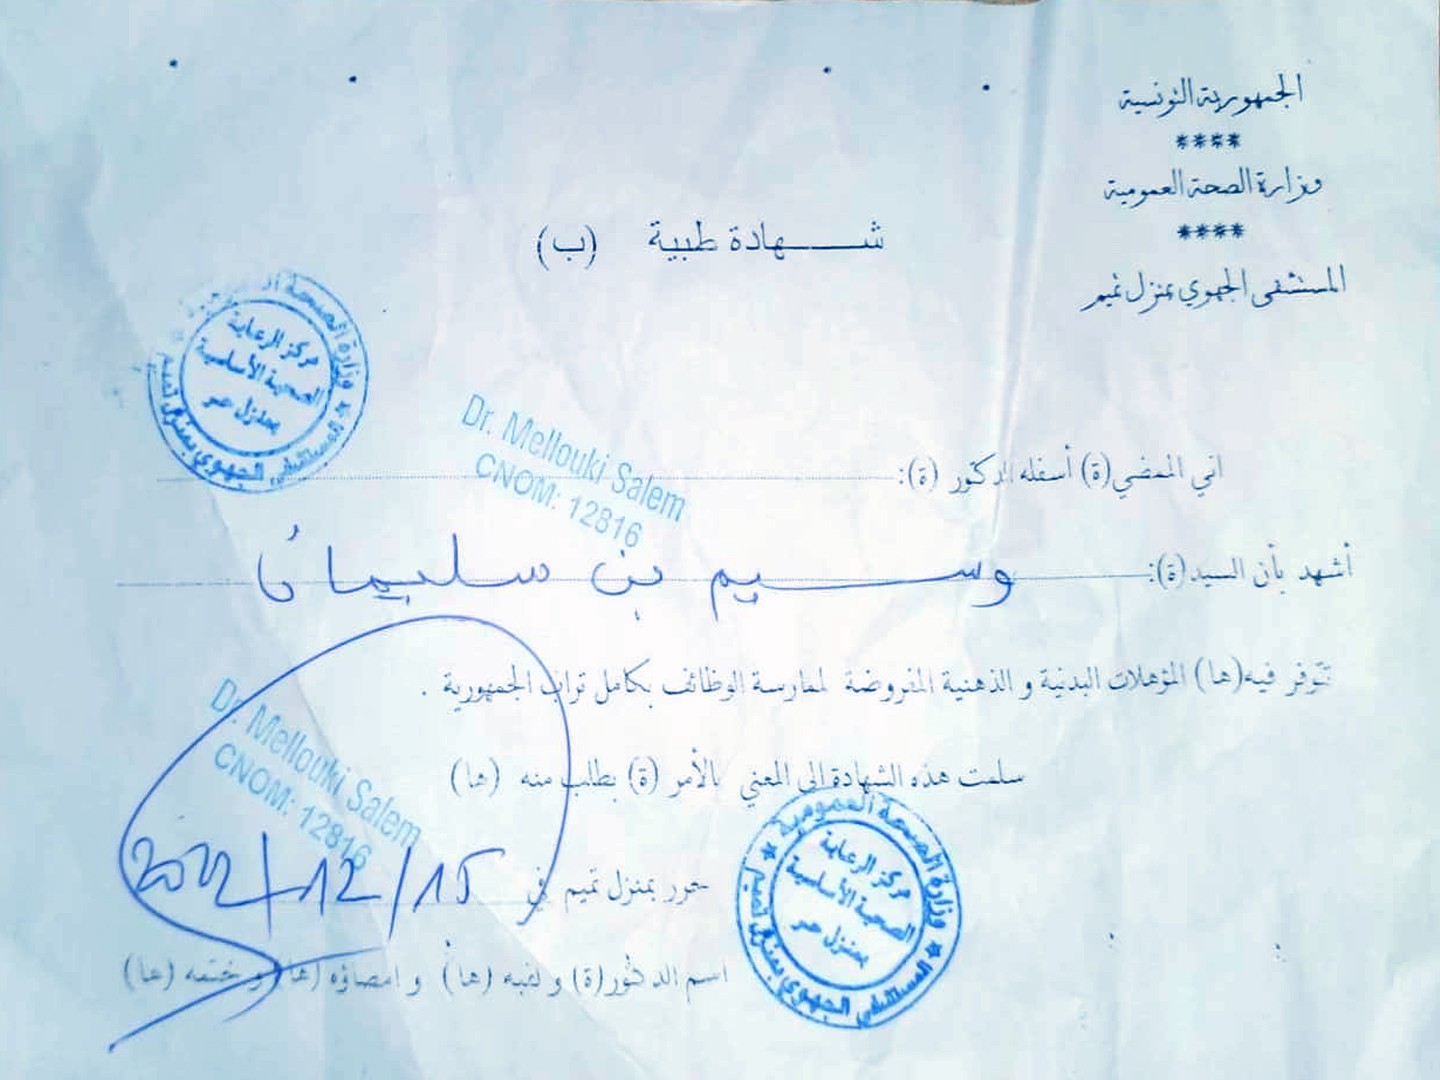 الجمهورية التونسية
****
وزارة الصحة العمومية
****
المستشفى الجهوي بمنزل تميم
شهادة طبية (ب)
وزارة الصحة العمومية * المستشفى الجهوي بمنزل تميم *
مركز الرعاية
الصحية الأساسية
بمنزل حر
اني الممضي(ة) أسفله الدكتور (ة):
Dr. Mellouki Salem
CNOM: 12816
أشهد بأن السيد(ة): وسيم بن سليمان
تتوفر فيه(ها) المؤهلات البدنية و الذهنية المفروضة لممارسة الوظائف بكامل تراب الجمهورية .
سلمت هذه الشهادة الى المعني بالأمر (ة) بطلب منه (ها)
Dr. Mellouki Salem
CNOM: 12816
حرر بمنزل تميم في 2022/12/15
اسم الدكتور(ة) و لقبه (ها) و امضاؤه (ها) و ختمه (ها)
وزارة الصحة العمومية * المستشفى الجهوي بمنزل تميم *
مركز الرعاية
الصحية الأساسية
بمنزل حر